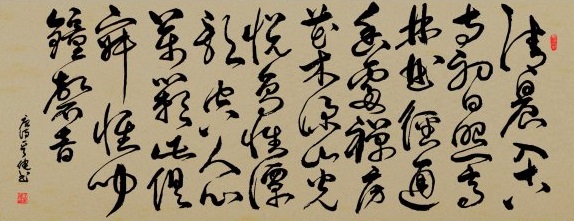 清晨入古
寺初日照高
林曲徑通
幽處禪房
花木深山光
悦鳥性潭
影空人心
萬籟此俱
寂惟聞
鐘磬音
唐詩